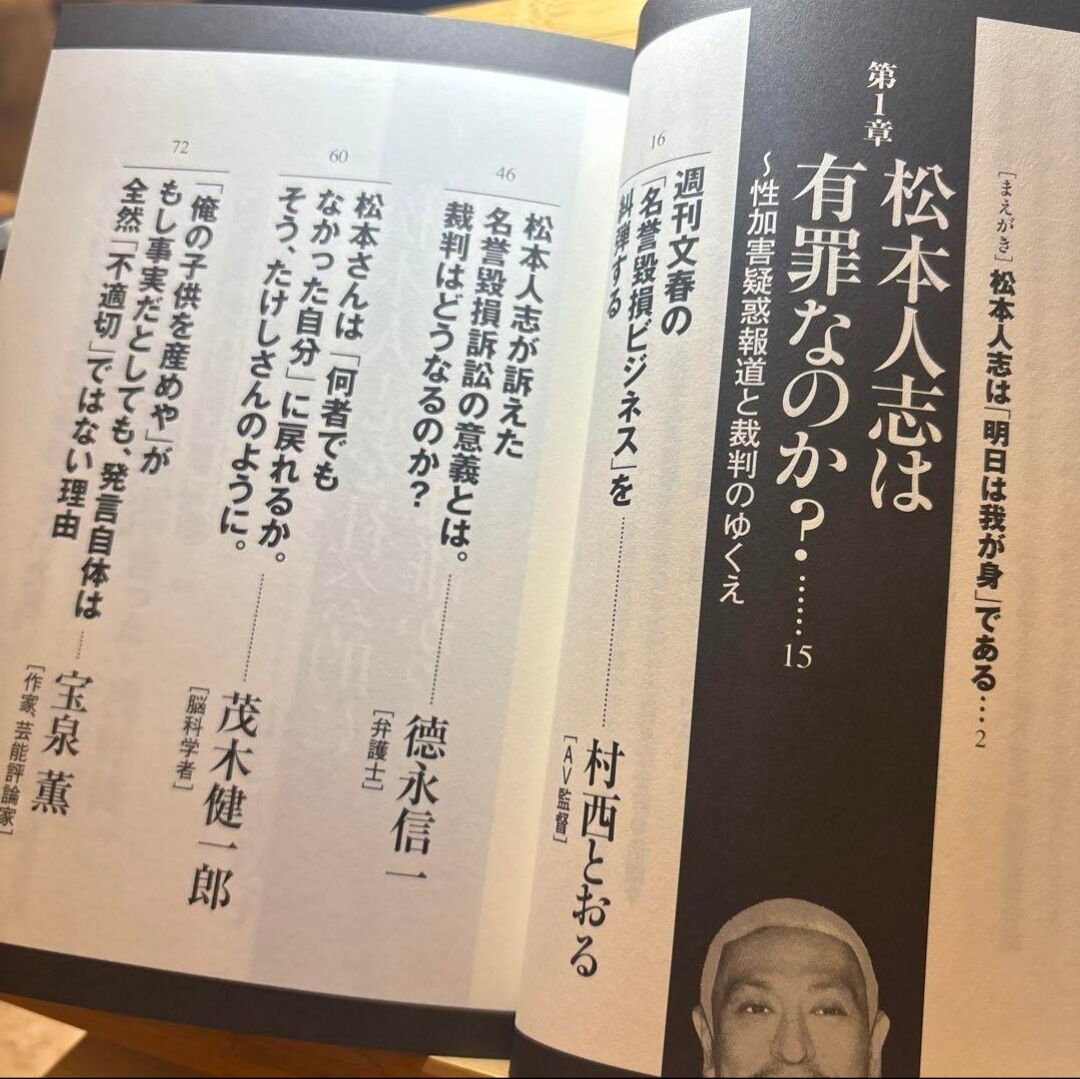 ［まえがき］ 松本人志は「明日は我が身」である…. 2
第1章
松本人志は
有罪なのか？……. 15
～性加害疑惑報道と裁判のゆくえ
16
週刊文春の
「名誉毀損ビジネス」を
糾弾する
村西とおる
［AV監督］
46
松本人志が訴えた
名誉毀損訴訟の意義とは。
裁判はどうなるのか？
徳永信一
［弁護士］
60
松本さんは「何者でも
なかった自分」に戻れるか。
そう、たけしさんのように。
茂木健一郎
［脳科学者］
72
「俺の子供を産めや」が
もし事実だとしても、発言自体は
全然「不適切」ではない理由
宝泉 薫
［作家、芸能評論家］